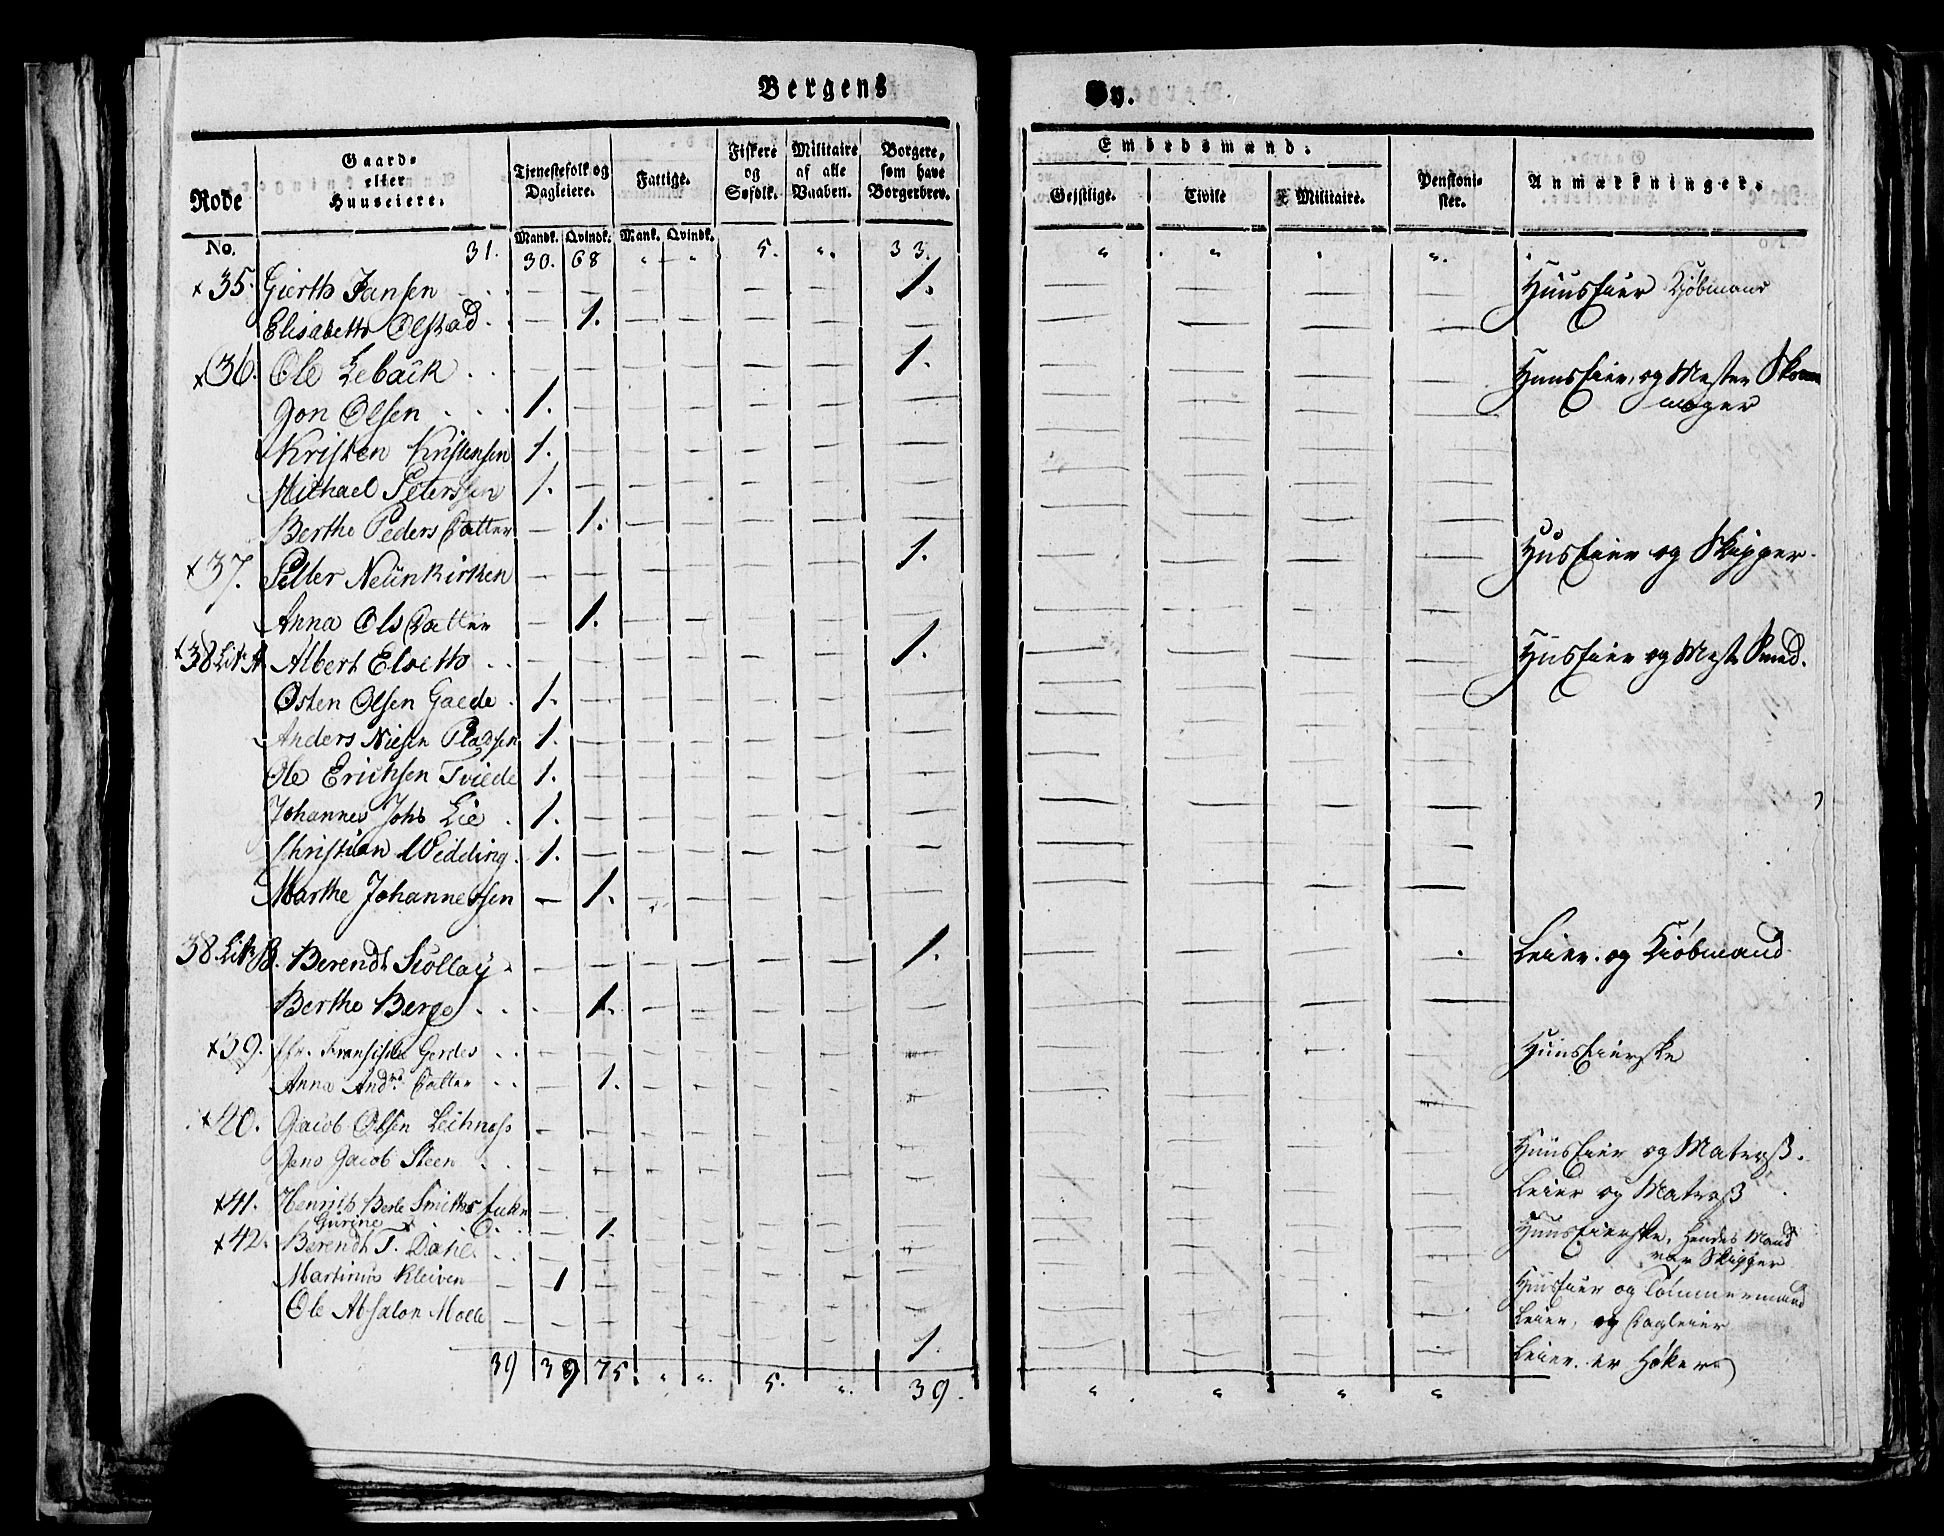 Bergens By.
Rode No.
Gaard- eller Huuseiere.
Tjenestefolk og Dagleiere.
Mandk. Qvindk.
Fattige.
Mank. Qvindk.
Fiskere og Søfolk.
Militaire af alle Vaaben.
Borgere, som have Borgerbrev.
Embedsmænd.
Gejstlige. Civile Militaire.
Pensionister.
Anmærkninger.
31. 30. 68 " " 5. ". 33. " " " ".
x 35. Gierth Jansen . . — — — — — — 1. — — — — Huus Eier Kjøbmand
Elisabeth Olstad . — 1. — — — — — — — — —
x 36. Ole Lebaik . . — — — — — — 1. — — — — Huus Eier, og Mester Skoe
mager
Jon Olsen . . . 1. — — — — — — — — — —
Kristen Kristensen 1. — — — — — — — — — —
Michael Peterssen 1. — — — — — — — — — —
Berthe Peders Datter — 1. — — — — — — — — —
x 37. Petter Neünkirken — — — — — — 1. — — — — Huus Eier og Skipper.
Anna Ols Datter — 1. — — — — — — — — —
x 38 Lit: A Albert Elvetto . . — — — — — — 1. — — — — Huus Eier og Mest Smed.
Osten Olsen Gaede . 1. — — — — — — — — — —
Anders Nielsen Pladsen 1. — — — — — — — — — —
Ole Erichsen Tviede 1. — — — — — — — — — —
Johannes Johs Lie . 1. — — — — — — — — — —
Christian Wedding . 1. — — — — — — — — — —
Marthe Johannessen — 1. — — — — — — — — —
38. Lit: B. Berendt Stollay . — — — — — — 1. — — — . Leier og Kiøbmand
Berthe Berge . . — 1. — — — — — — — — —
x 39. Fransiska Gerdes . . — — — — — — — — — — — Huus Eierske
Anna And.s Datter . . — 1. — — — — — — — — —
x 40. Jacob Olsen Leitness — — — — — — — — — — — Huus Eier og Matroß.
Jens Jacob Steen . . — — — — — — — — — — — Leier og Matroß
x 41. Henrich Berle Smiths Enke — — — — — — — — — — — Huus Eierske, hendes Mand
var Skipper
Gurine . . — 1.
x 42. Berendt J. Dahl . . — — — — — — — — — — — Huus Eier og Tømmermand
Martinus Kleiven — 1 — — — — — — — — — Leier, og Dagleier
Ole Absalon Moele — — — — — — 1. — — — — Leier. er Høker
39 39 75. " ". 5. ". 39. " " " "